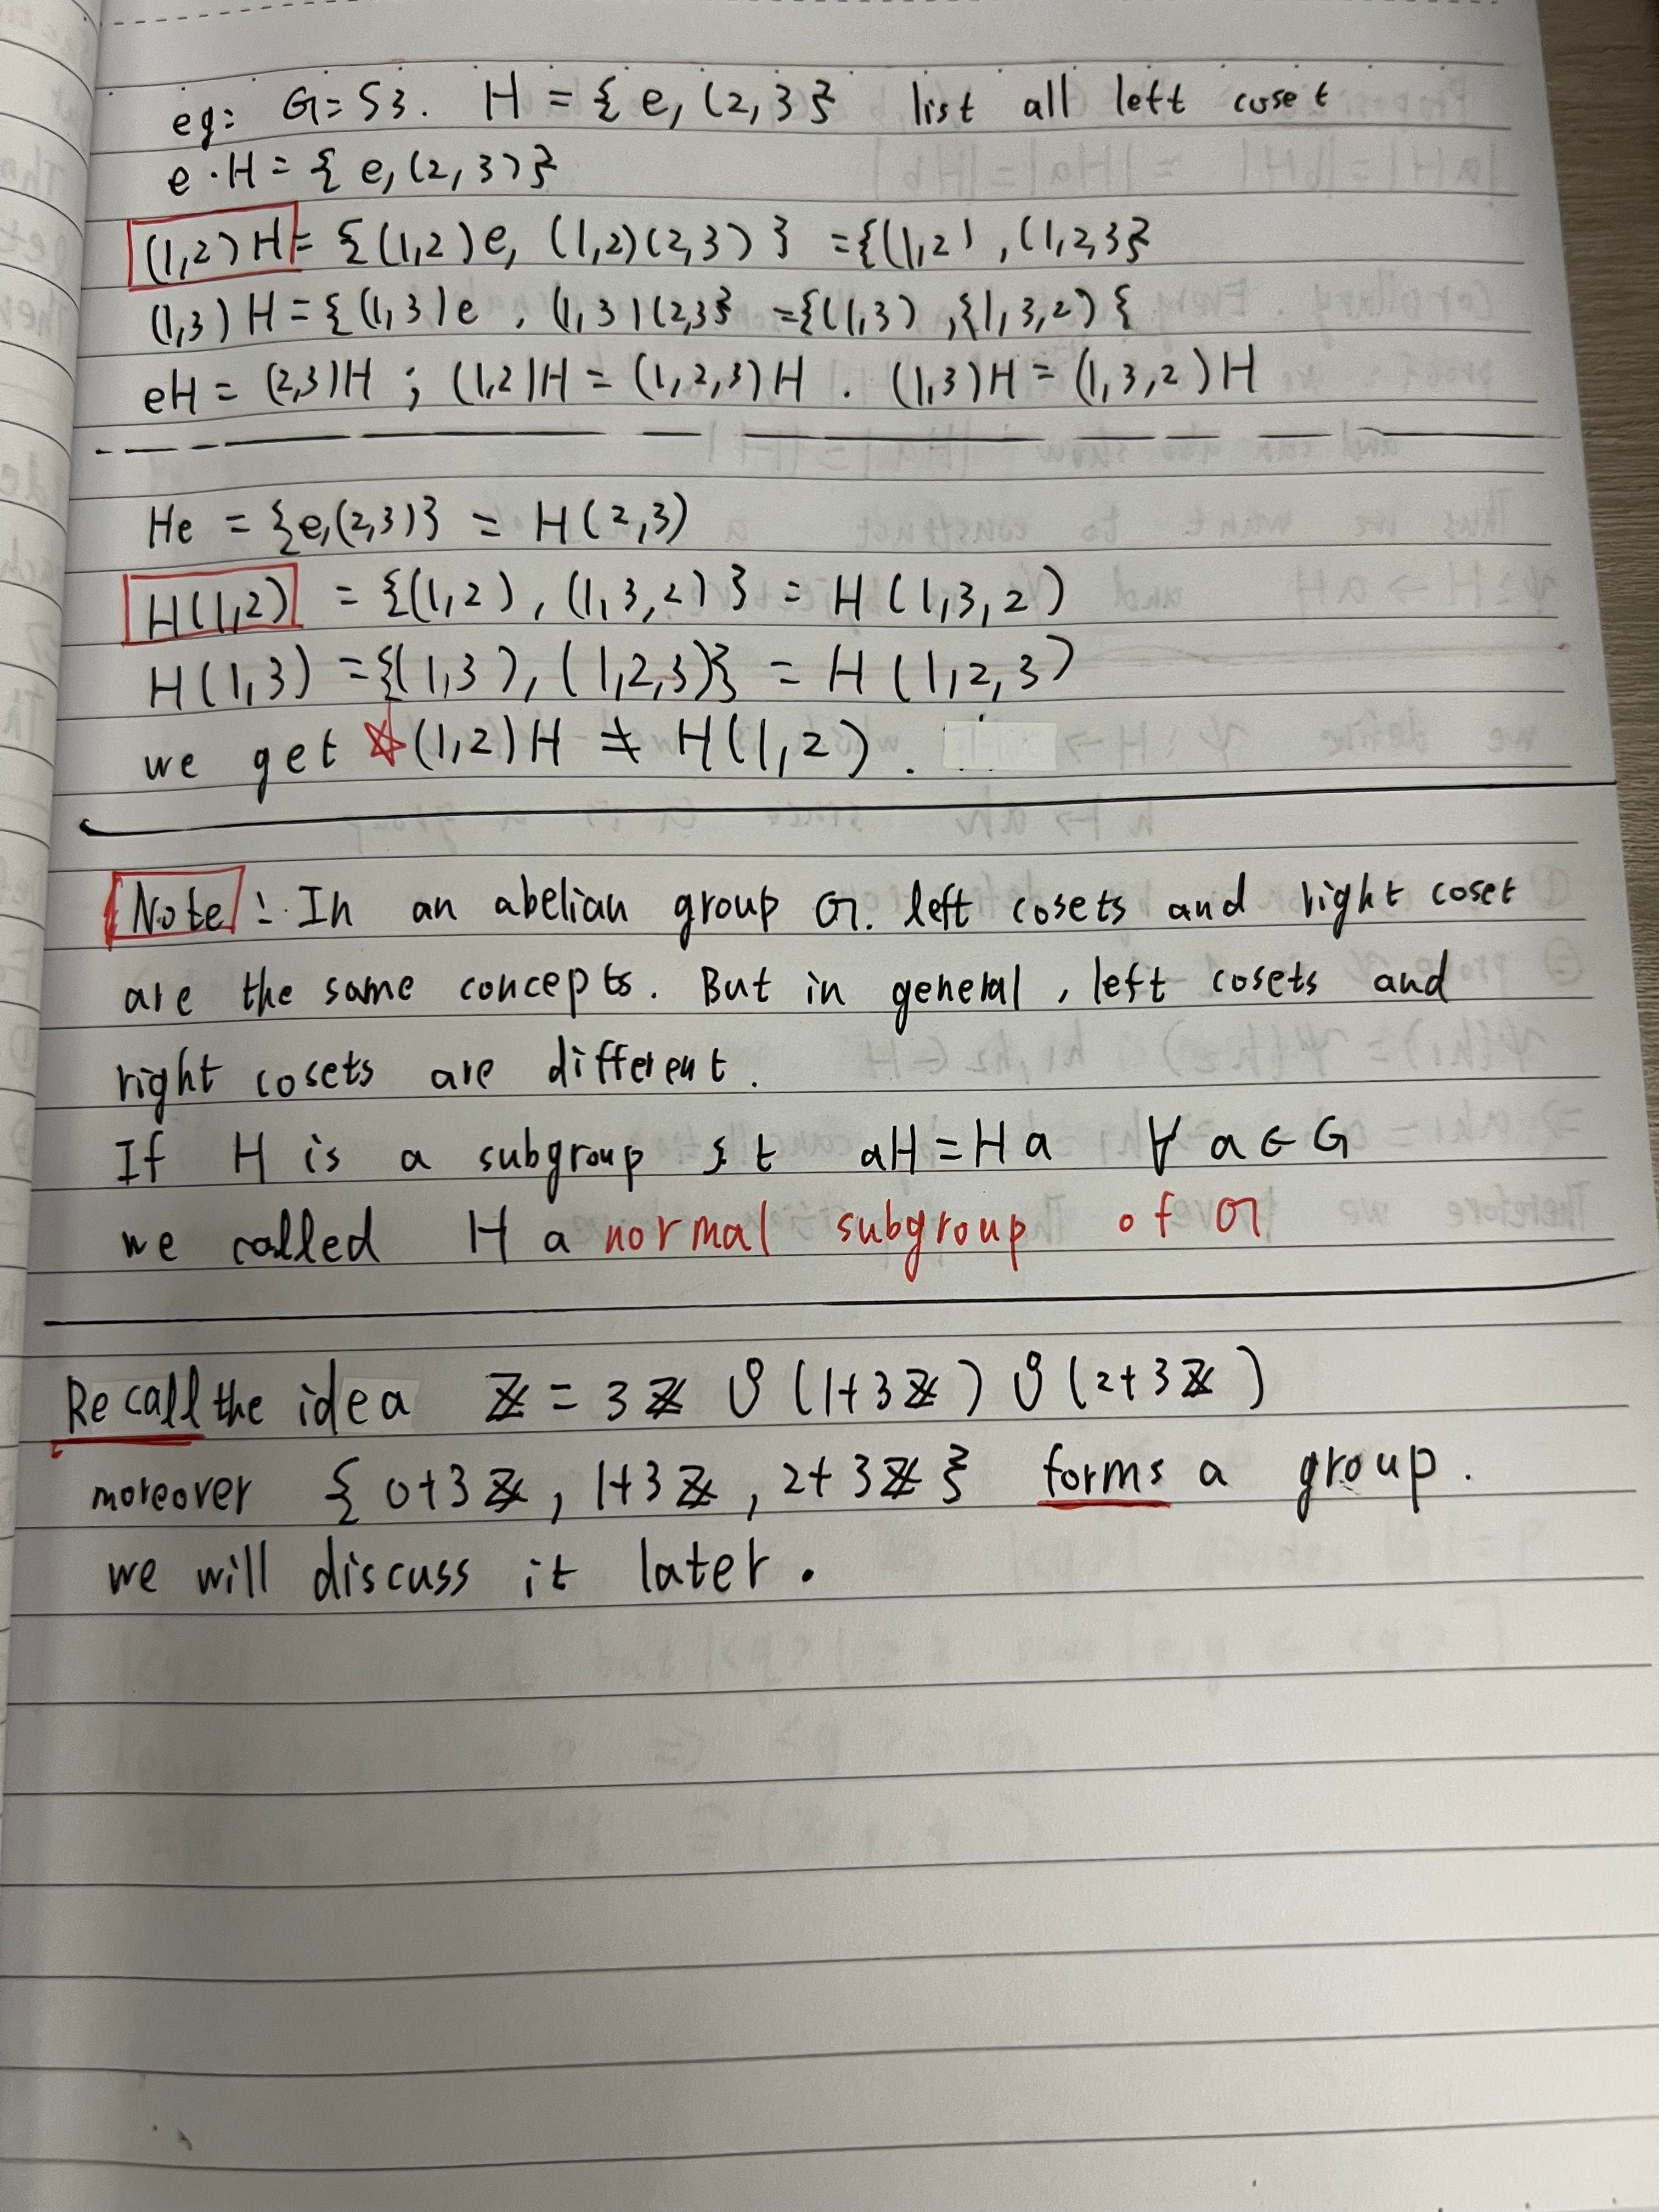 eg: G=S3. H = { e, (2,3} list all left coset
e·H = { e, (2,3)}
(1,2)H = {(1,2)e, (1,2)(2,3)} ={(1,2), (1,2,3}
(1,3)H = {(1,3)e, (1,3)(2,3} ={(1,3), {1,3,2) {
eH = (2,3)H ; (1,2)H = (1,2,3)H . (1,3)H = (1,3,2)H
He = {e,(2,3)} = H(2,3)
H(1,2) = {(1,2), (1,3,2)} = H(1,3,2)
H(1,3) = {(1,3), (1,2,3)} = H(1,2,3)
we get ☆(1,2)H ≠ H(1,2).
Note: In an abelian group G. left cosets and right coset
are the same concepts. But in general, left cosets and
right cosets are different.
If H is a subgroup s.t aH = Ha ∀ a∈G
we called H a normal subgroup of G
Recall the idea ℤ = 3ℤ ⨃ (1+3ℤ) ⨃ (2+3ℤ)
moreover { 0+3ℤ, 1+3ℤ, 2+3ℤ } forms a group.
we will discuss it later.